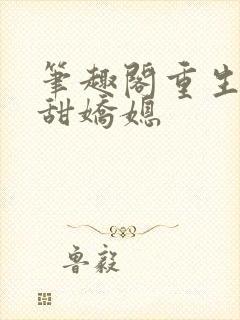 筆趣閣重生
甜嬌媳
魯毅